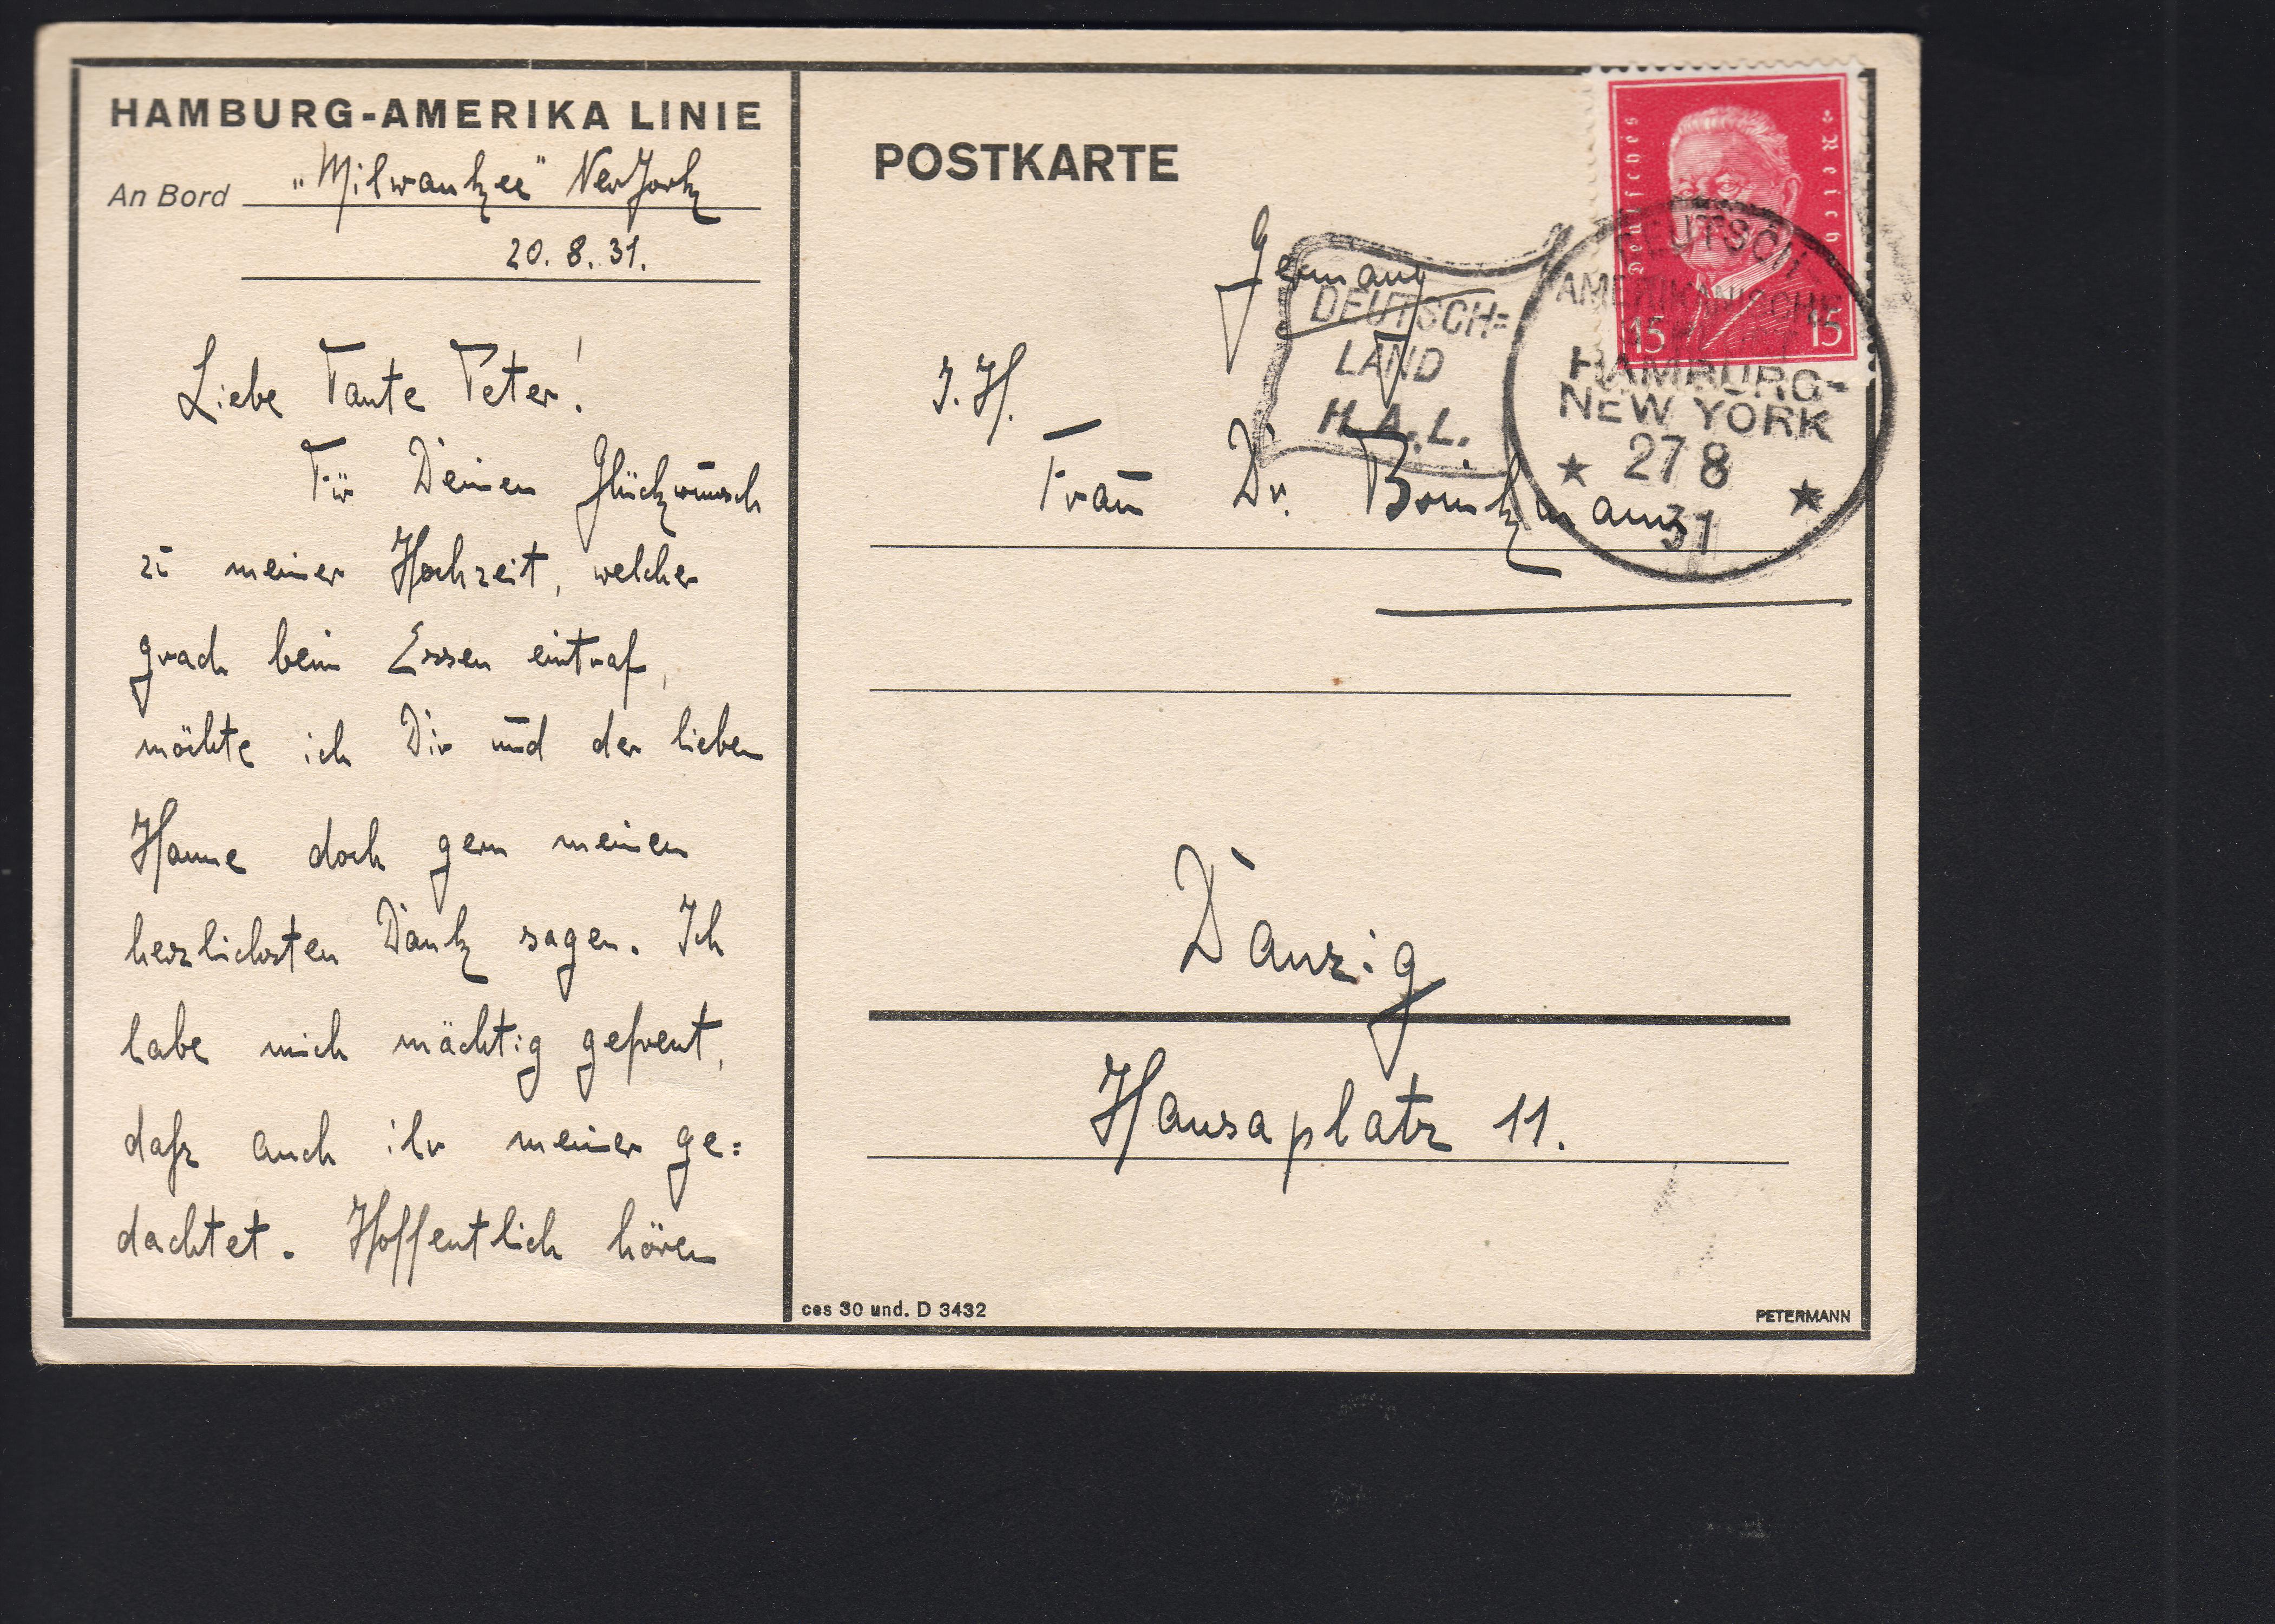 HAMBURG-AMERIKA LINIE
An Bord „Milwaukee" NewYork
20. 8. 31.
Liebe Tante Peter!
Für Deinen Glückwunsch
zu meiner Hochzeit, welcher
grad beim Essen eintraf,
möchte ich Dir und der lieben
Hanne doch gern meinen
herzlichsten Dank sagen. Ich
habe mich mächtig gefreut,
daß auch ihr meiner ge=
dachtet. Hoffentlich hören
POSTKARTE
Deutsches Reich
15 15
Germany
DEUTSCH=
LAND
H.A.L.
DEUTSCH-
AMERIKANISCHE
HAMBURG-
NEW YORK
27 8
31
I.H.
Frau Dr.
Danzig
Hansaplatz 11.
ces 30 und. D 3432
PETERMANN